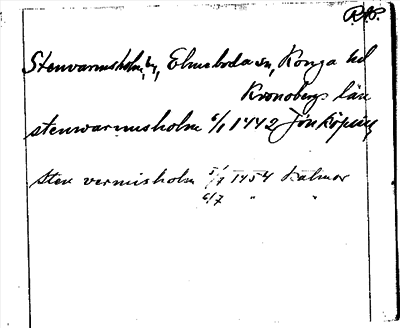 R.A.P.
Stenvarmsholm, by, Elmeboda sn, Konga hd
Kronobergs län
stenwarmsholm 6/1 1442 Jönköping
sten vermisholm 5/7 1454 Kalmar
6/7 " "